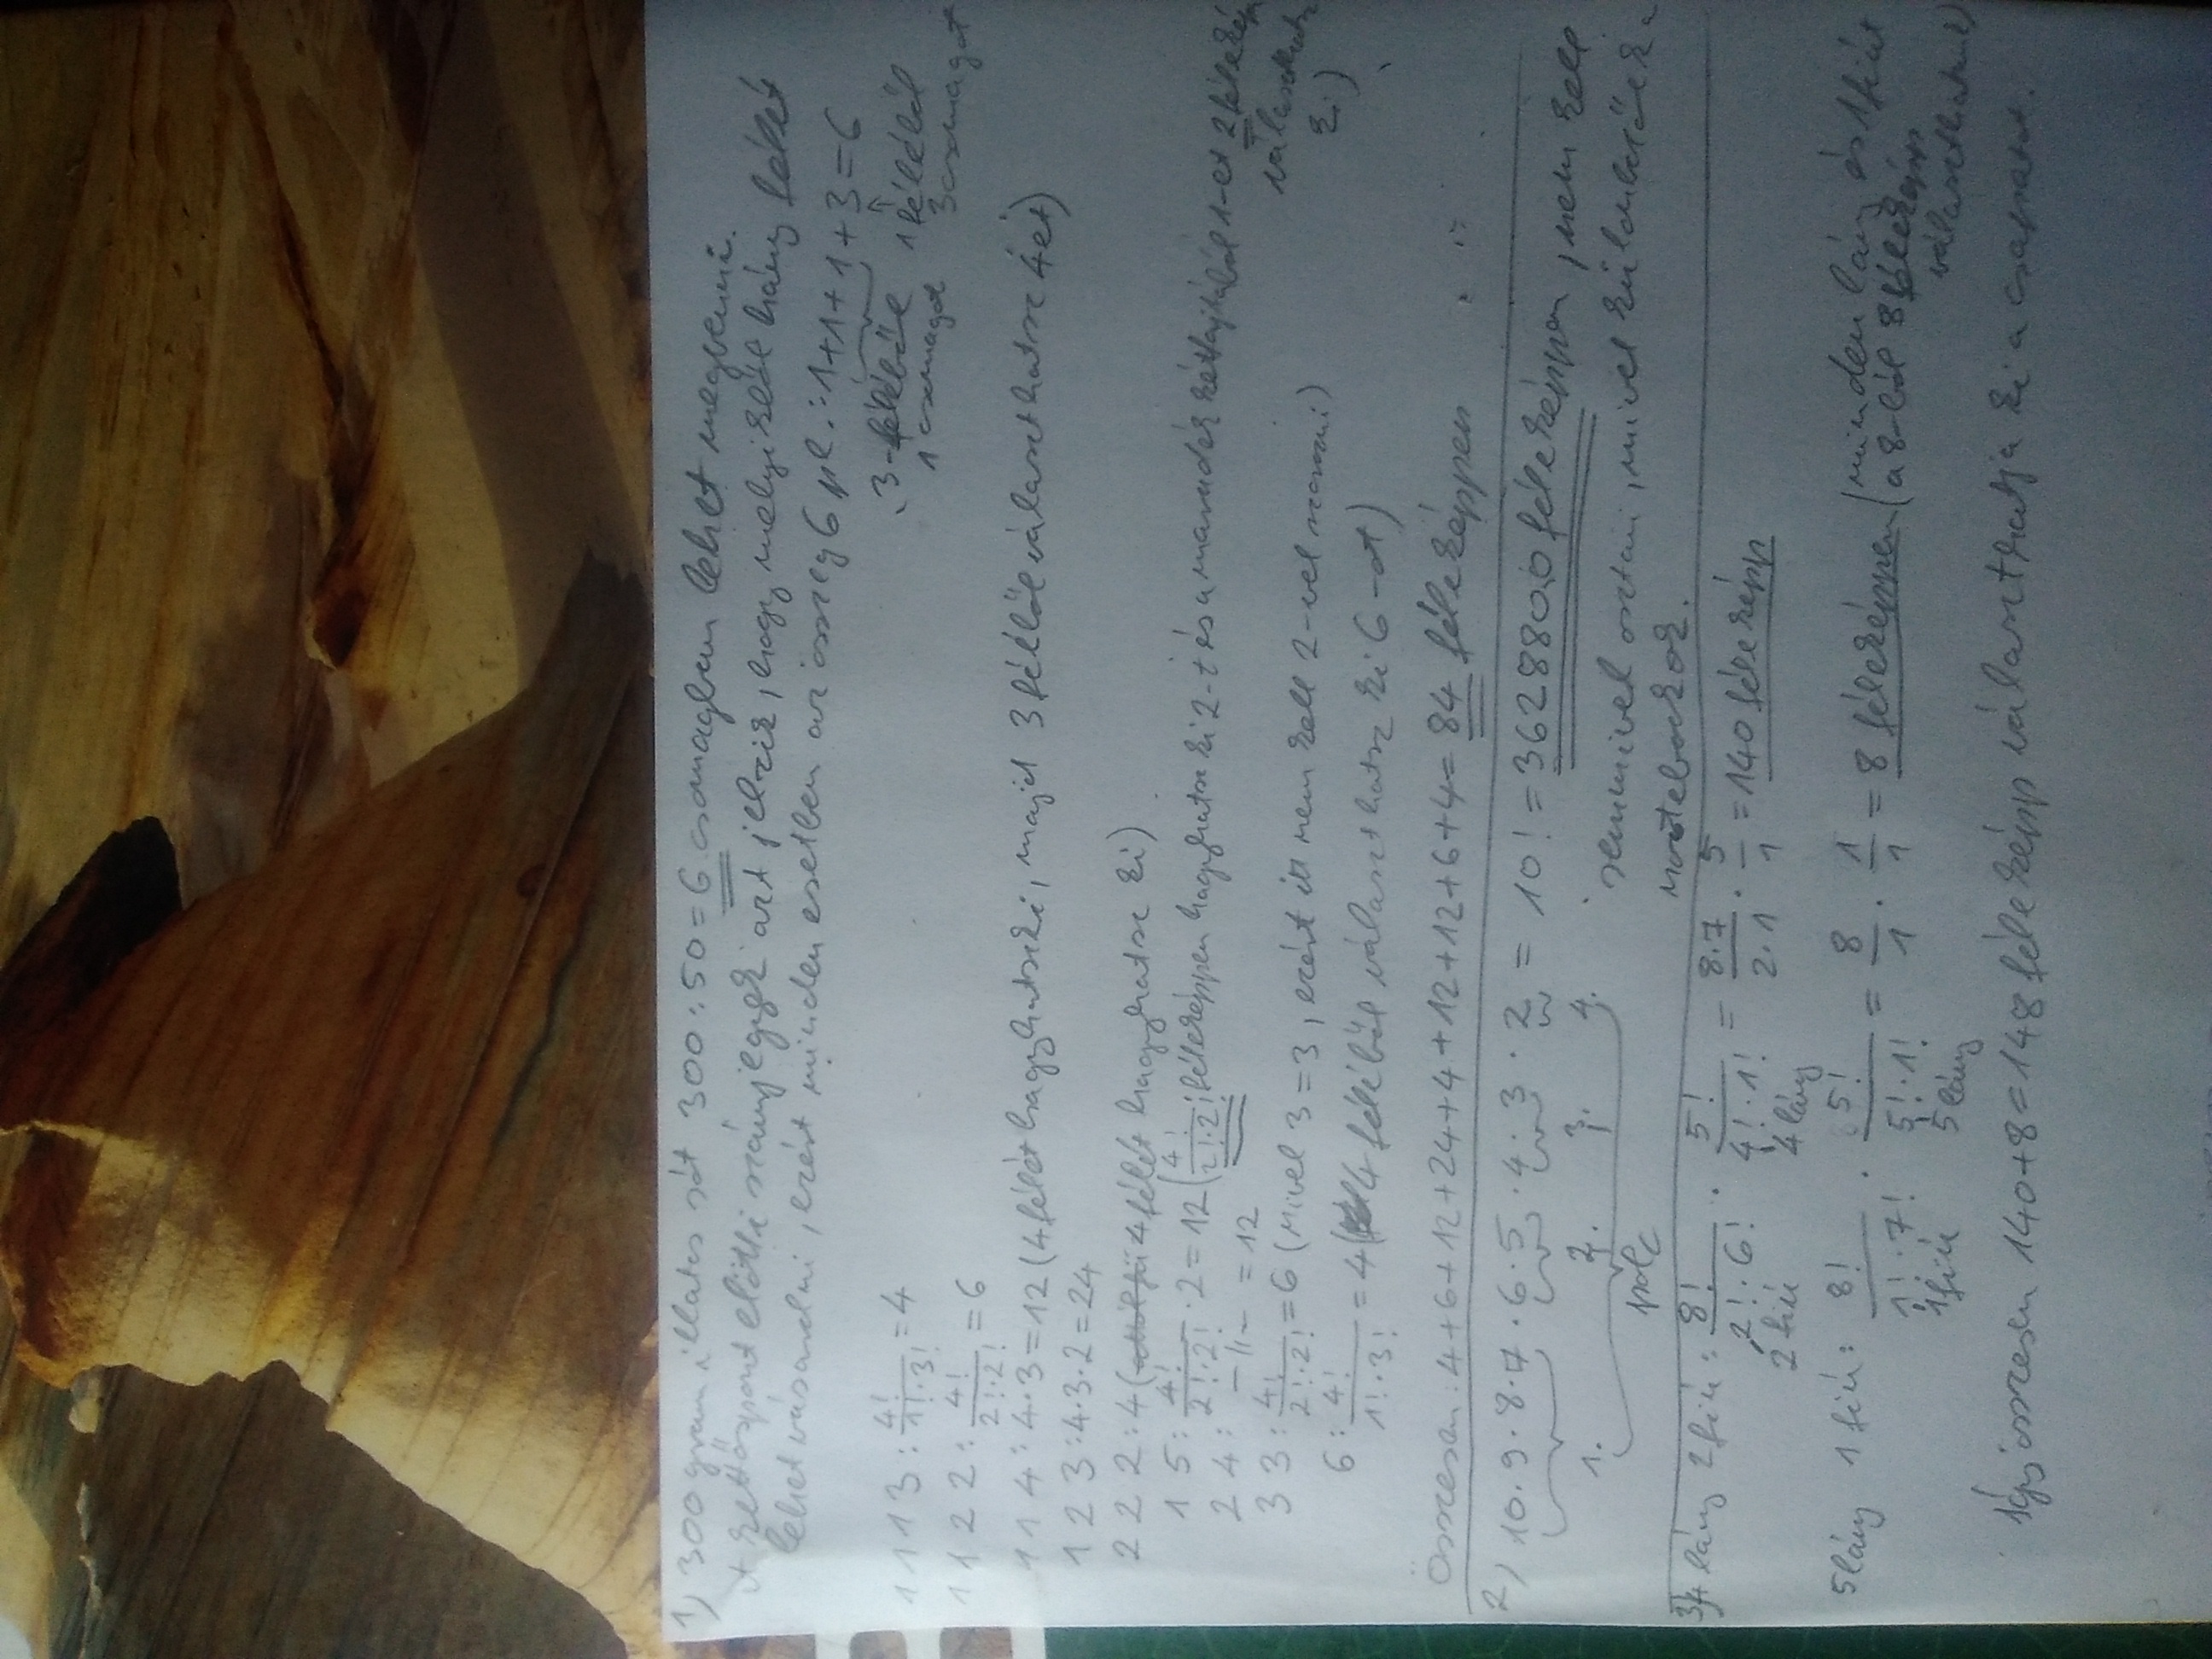 1) 300 gram illatos sót 300:50=6 csomagban lehet megvenni.
A kettőspont előtti számjegyek azt jelzik, hogy melyikből hány félét
lehet vásárolni, ezért minden esetben az összeg 6 pl.: 1+1+1+3=6
3-féléből 1 féléből
1 csomagot 3 csomagot
1 1 1 3 : 4!/1!·3! = 4
1 1 2 2 : 4!/2!·2! = 6
1 1 4 : 4·3=12 (4 félét hagyhatsz ki, majd 3 féléből választhatsz 4et)
1 2 3 : 4·3·2=24
2 2 2 : 4 (4 félét hagyhatsz ki)
1 5 : 4!/2!·2! ·2=12 (4!/2!·2! féleképpen hagyhatsz ki 2-t és a maradék kétfajtából 1-et 2féleképp
választhatsz
ki)
2 4 : —II— =12
3 3 : 4!/2!·2! =6 (mivel 3=3, ezért itt nem kell 2-vel szorozni)
6 : 4!/1!·3! =4 (4 féléből választhatsz ki 6-ot)
Összesen: 4+6+12+24+4+12+12+6+4= 84 féleképpen
2) 10·9·8·7·6·5·4·3·2 = 10! = 3628800 féleképpen, nem kell
1. 2. 3. 4.
polc
semmivel osztani, mivel különbözőek a
notebookok.
3) 4 lány 2 fiú: 8!/2!·6! · 5!/4!·1! = 8·7/2·1 · 5/1 = 140 féleképp
2 fiú 4 lány
5 lány 1 fiú: 8!/1!·7! · 5!/5!·1! = 8/1 · 1/1 = 8 féleképpen (minden lány és 1 fiút
a 8-ból 8 féleképp
választhatunk)
1 fiú 5 lány
Így összesen 140+8=148 féleképp választhatja ki a csapatot.